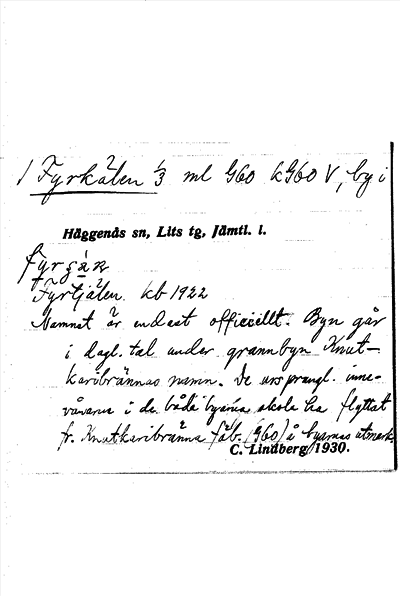 1 Fyrkälen 1/3 ml G60 k G60 V, by i
Häggenås sn, Lits tg, Jämtl. l.
Fyrtjälen kb 1922
Namnet är endast officiellt. Byn går
i dagl. tal under grannbyn Knut-
karibrännas namn. De ursprungl. inne-
vånarna i de båda byarna skola ha flyttat
fr. Knutkaribränna fäb. (G60) å byarnas utmark.
C. Lindberg 1930.